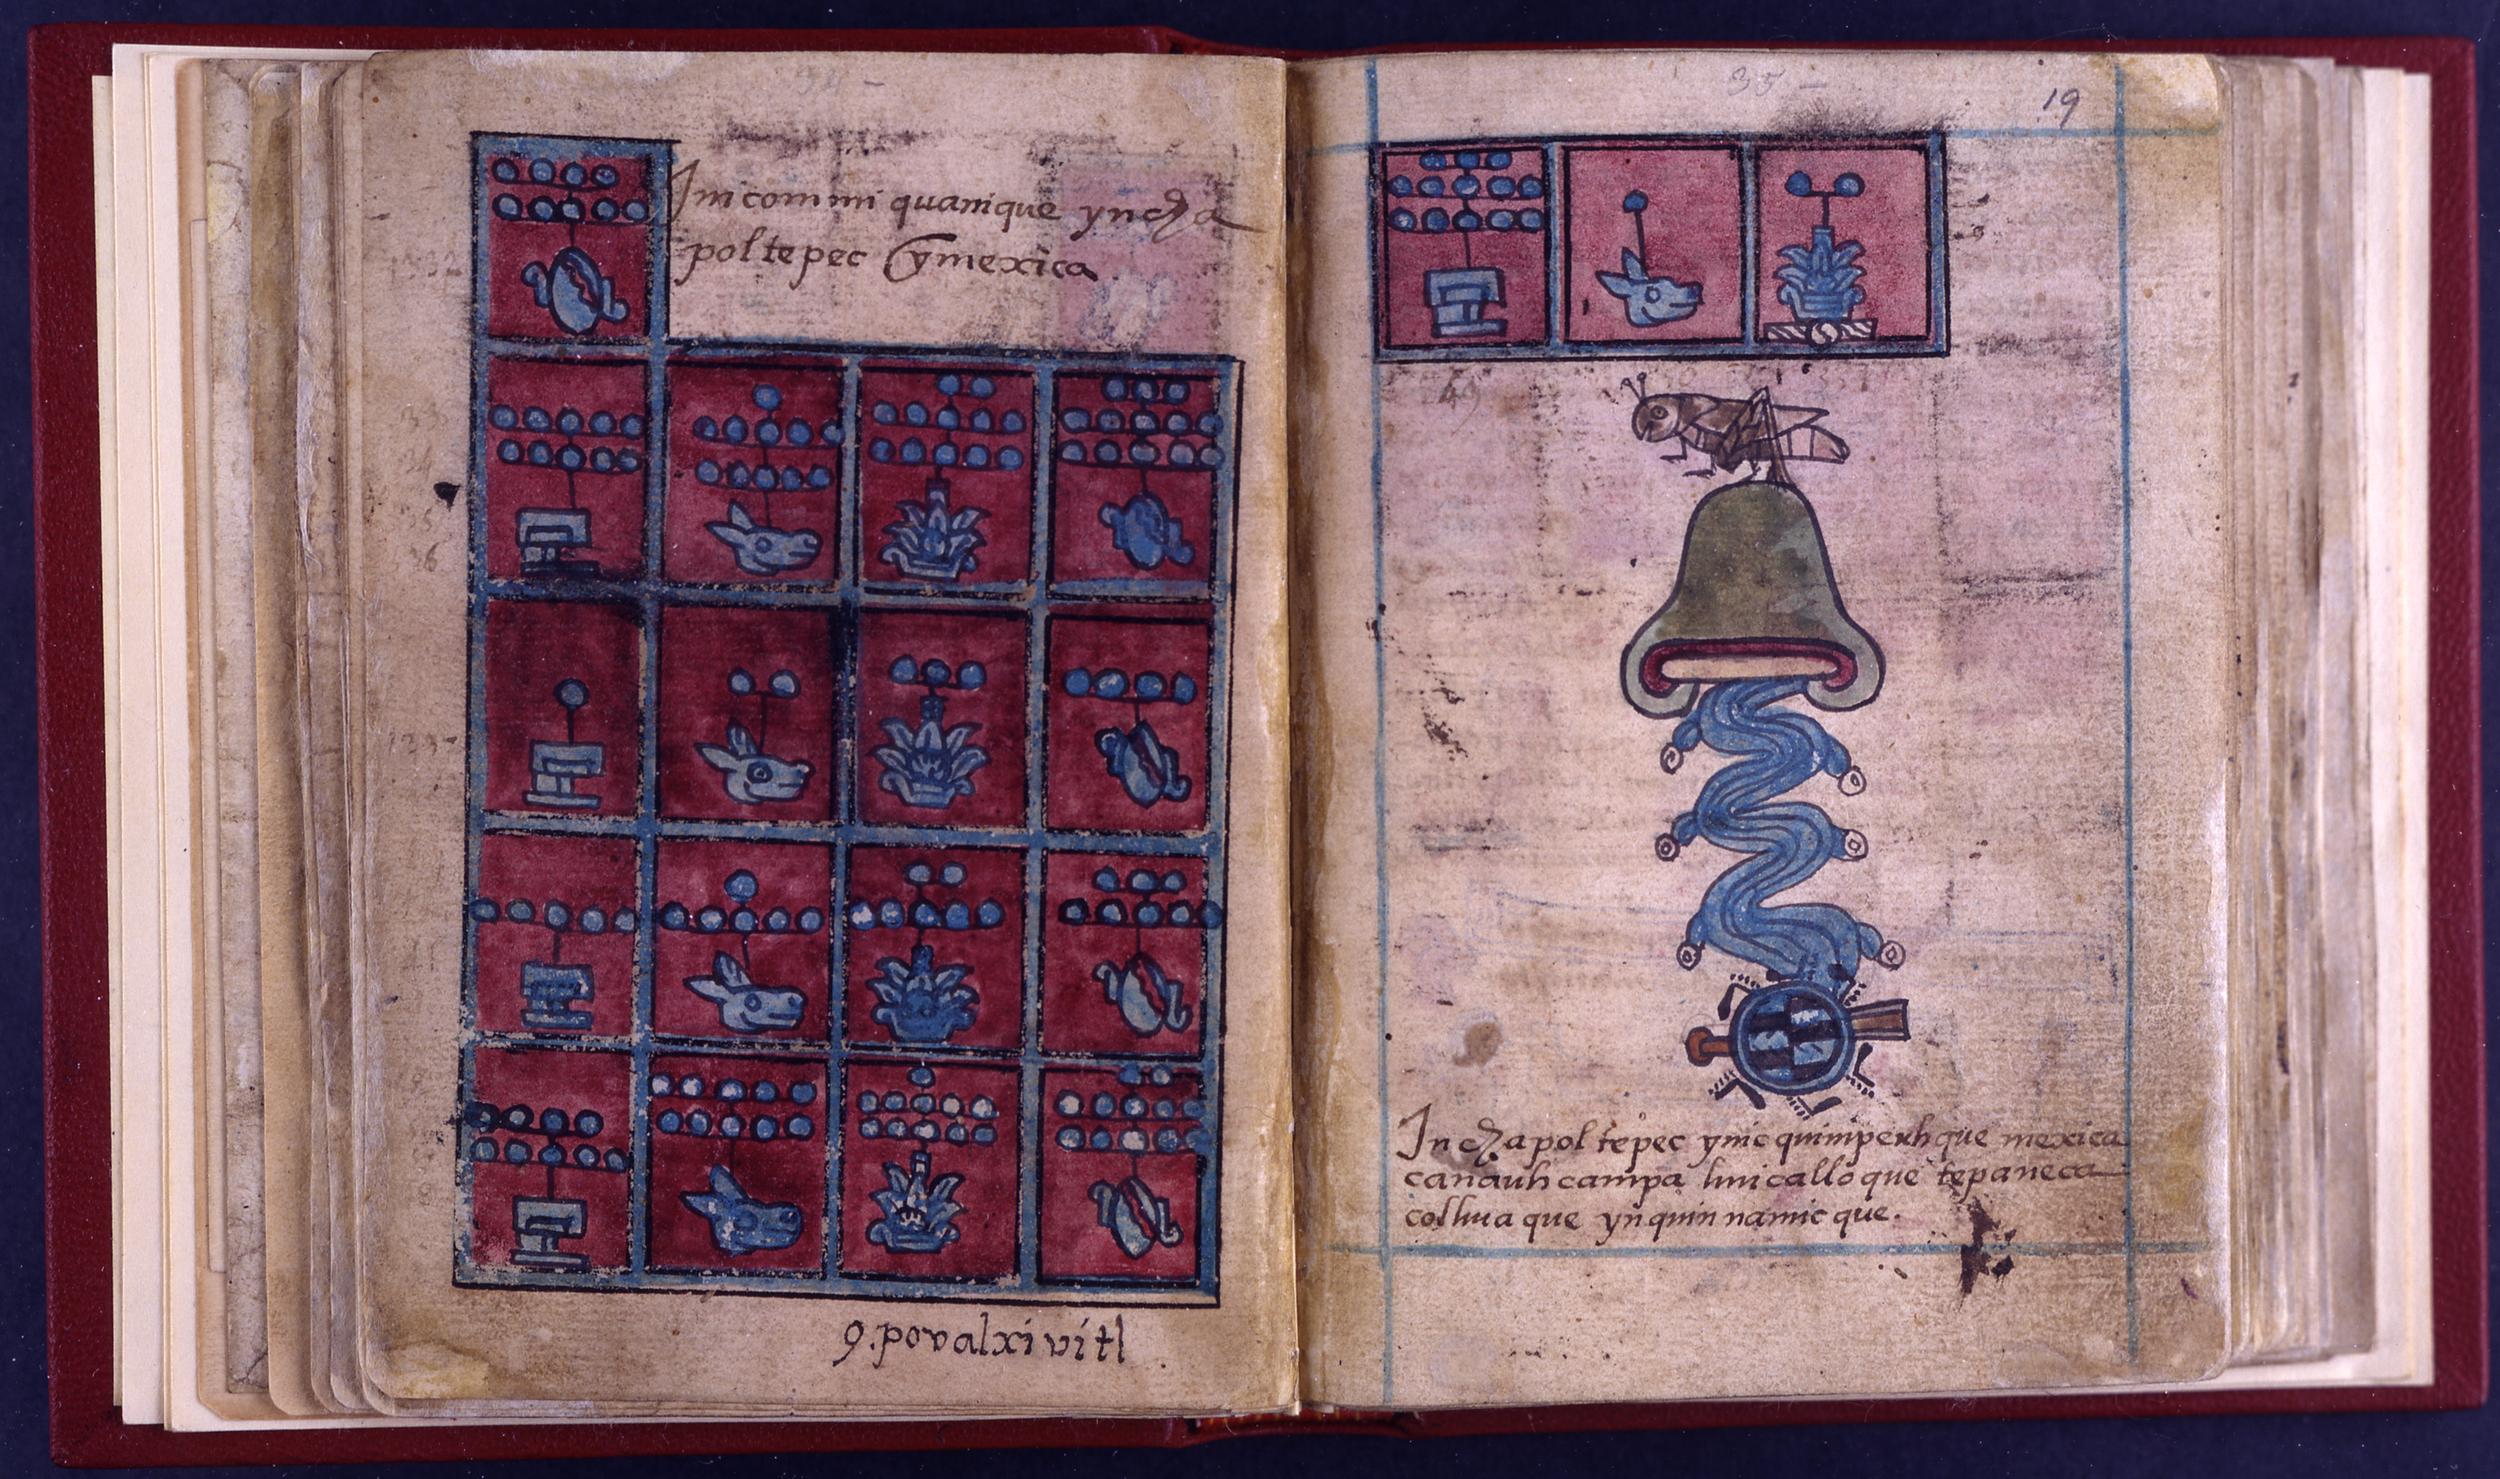 Inicommi quamique yncħa
poltepec ỹmexica
9.povalxi vitl
35 -
19
In cħapoltepec ynic quimpeuhque mexica
canauhcampa hnicalloque tepaneca
colhuaque yn quinnamicque.